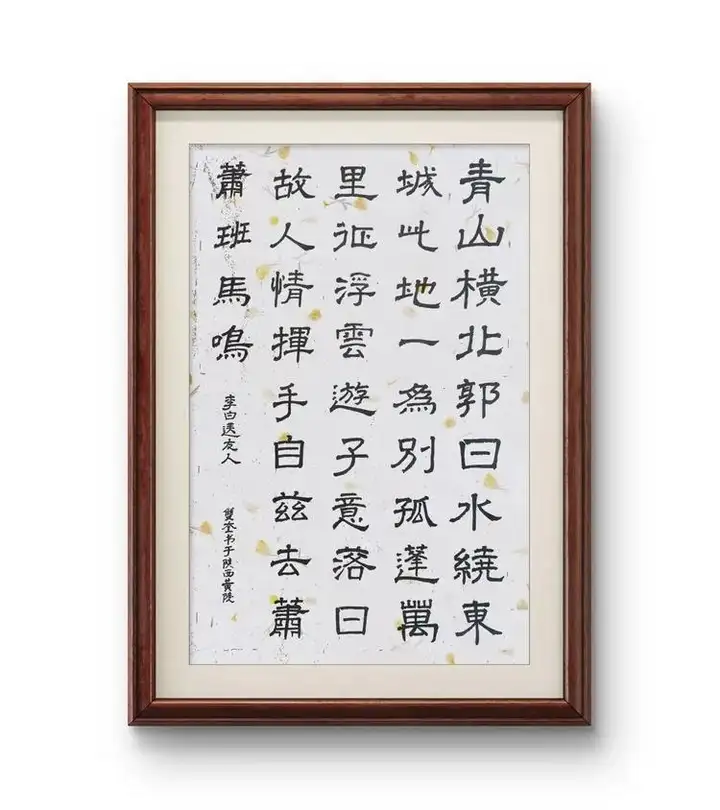 青山橫北郭曰水繞東
城此地一為別孤蓬萬
里征浮雲遊子意落日
故人情揮手自茲去蕭
蕭班馬鳴
李白送友人
雙奎书于陕西黄陵